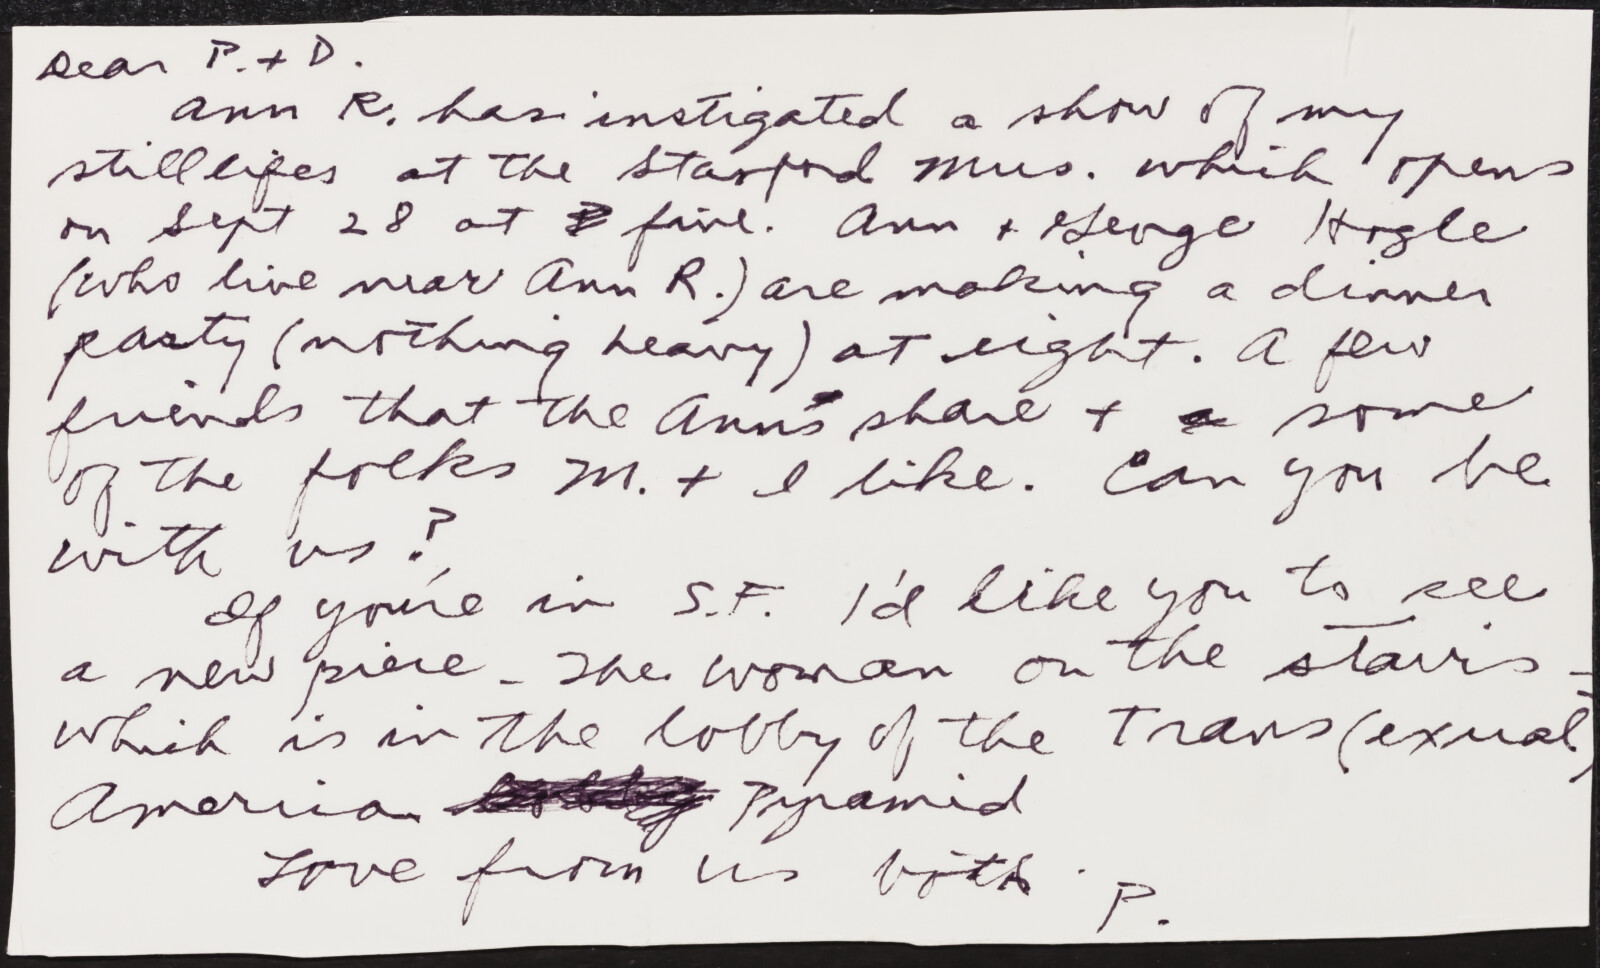 Dear P. + D.
Ann R. has instigated a show of my
still lifes at the Stanford Mus. which opens
on Sept 28 at five. Ann + George Hogle
(who live near Ann R.) are making a dinner
party (nothing heavy) at eight. A few
friends that the Anns share + some
of the folks M. + I like. Can you be
with us?
If you're in S.F. I'd like you to see
a new piece - The woman on the stairs -
which is in the lobby of the Trans(exual)
America Pyramid
Love from us both.
P.